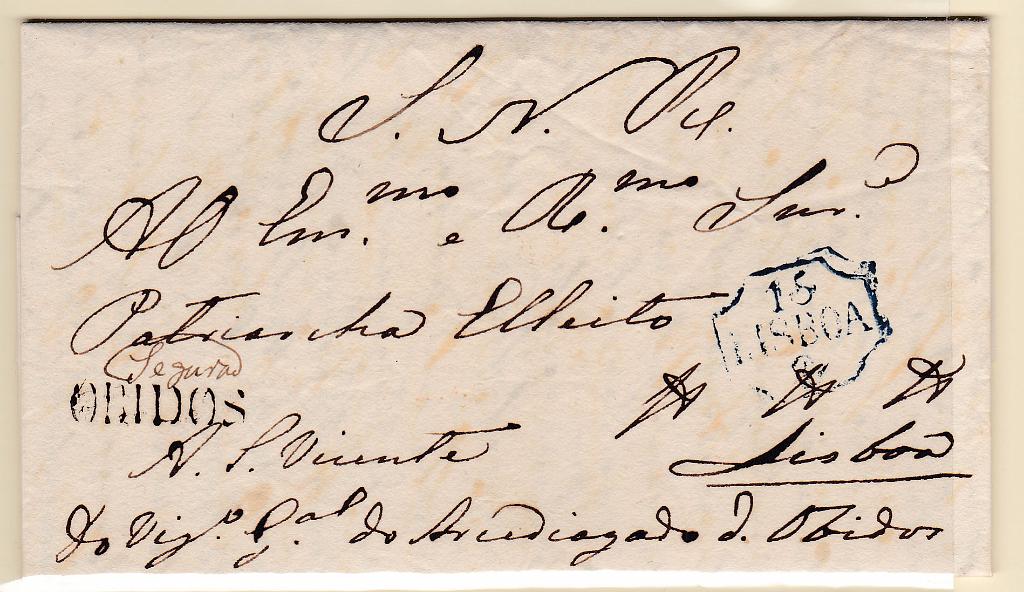 S. N. Re.
Ao Em.mo e R.mo Snr.
Patriarcha Elleito
15
LISBOA
Segurad
OBIDOS
A. S. Vicente
Lisboa
Do Vig.o G.al do Arcediagado d. Obidos